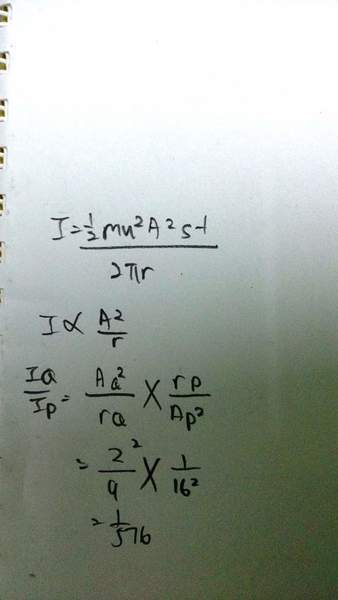 I = ½mu²A²s-1
2πr
I ∝ A²/r
IQ/Ip = AQ²/rQ × rp/Ap²
= 2²/9 × 1/16²
= 1/576